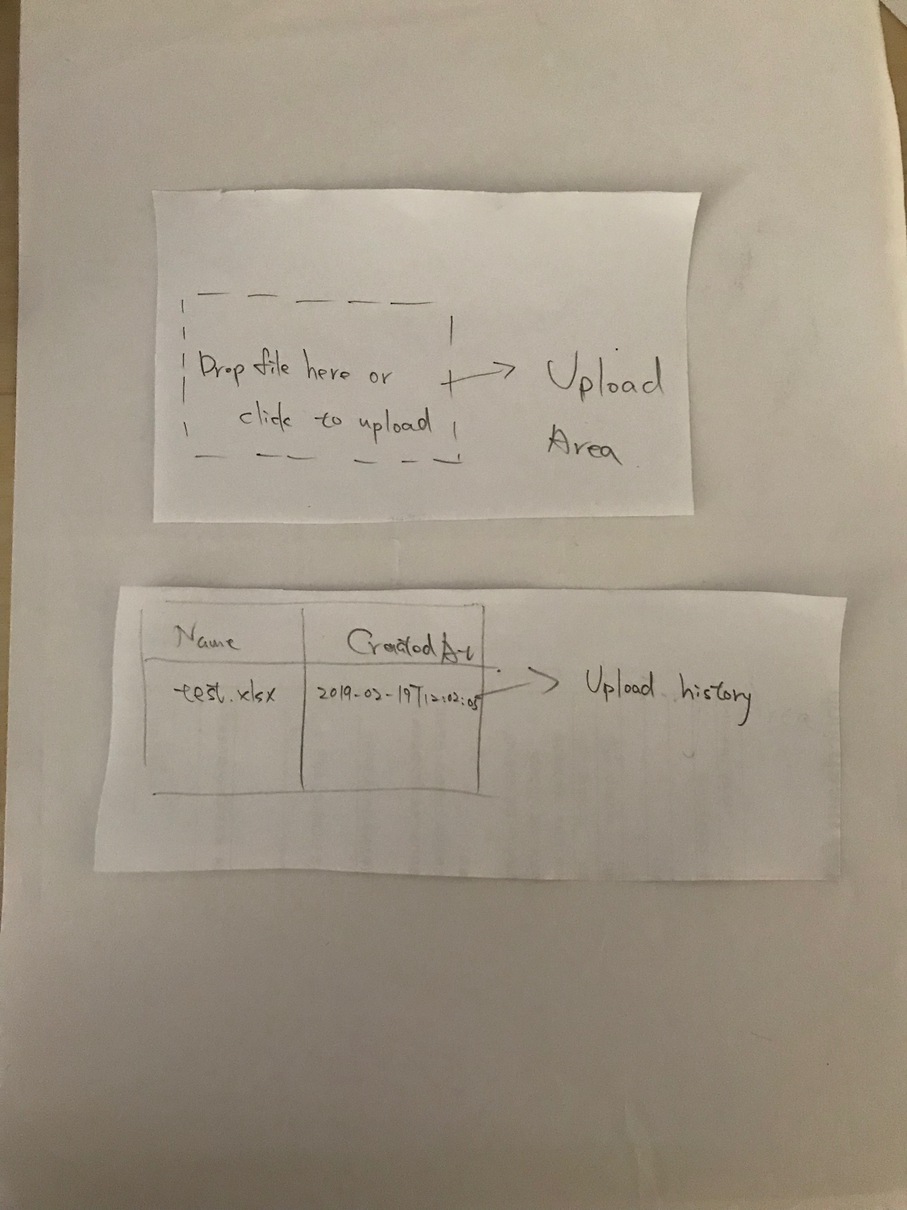 Drop file here or
click to upload
Upload
Area
Name
CreatedAt
test.xlsx
2019-02-19T12:02:05
Upload history